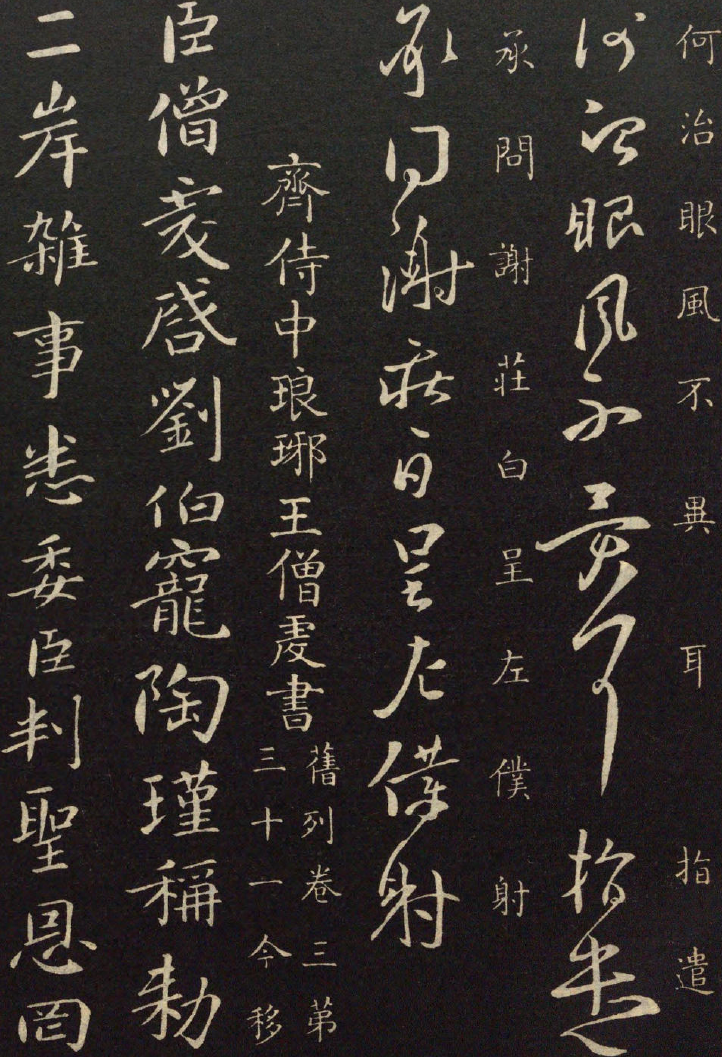 何治眼風不異耳 指遣
何治眼風不異耳指遣
承問謝莊白呈左僕射
承問謝莊白呈左僕射
齊侍中琅琊王僧虔書
舊列卷三第
三十一今移
臣僧虔啓劉伯寵陶瑾稱勑
二岸雑事悉委臣判聖恩罔